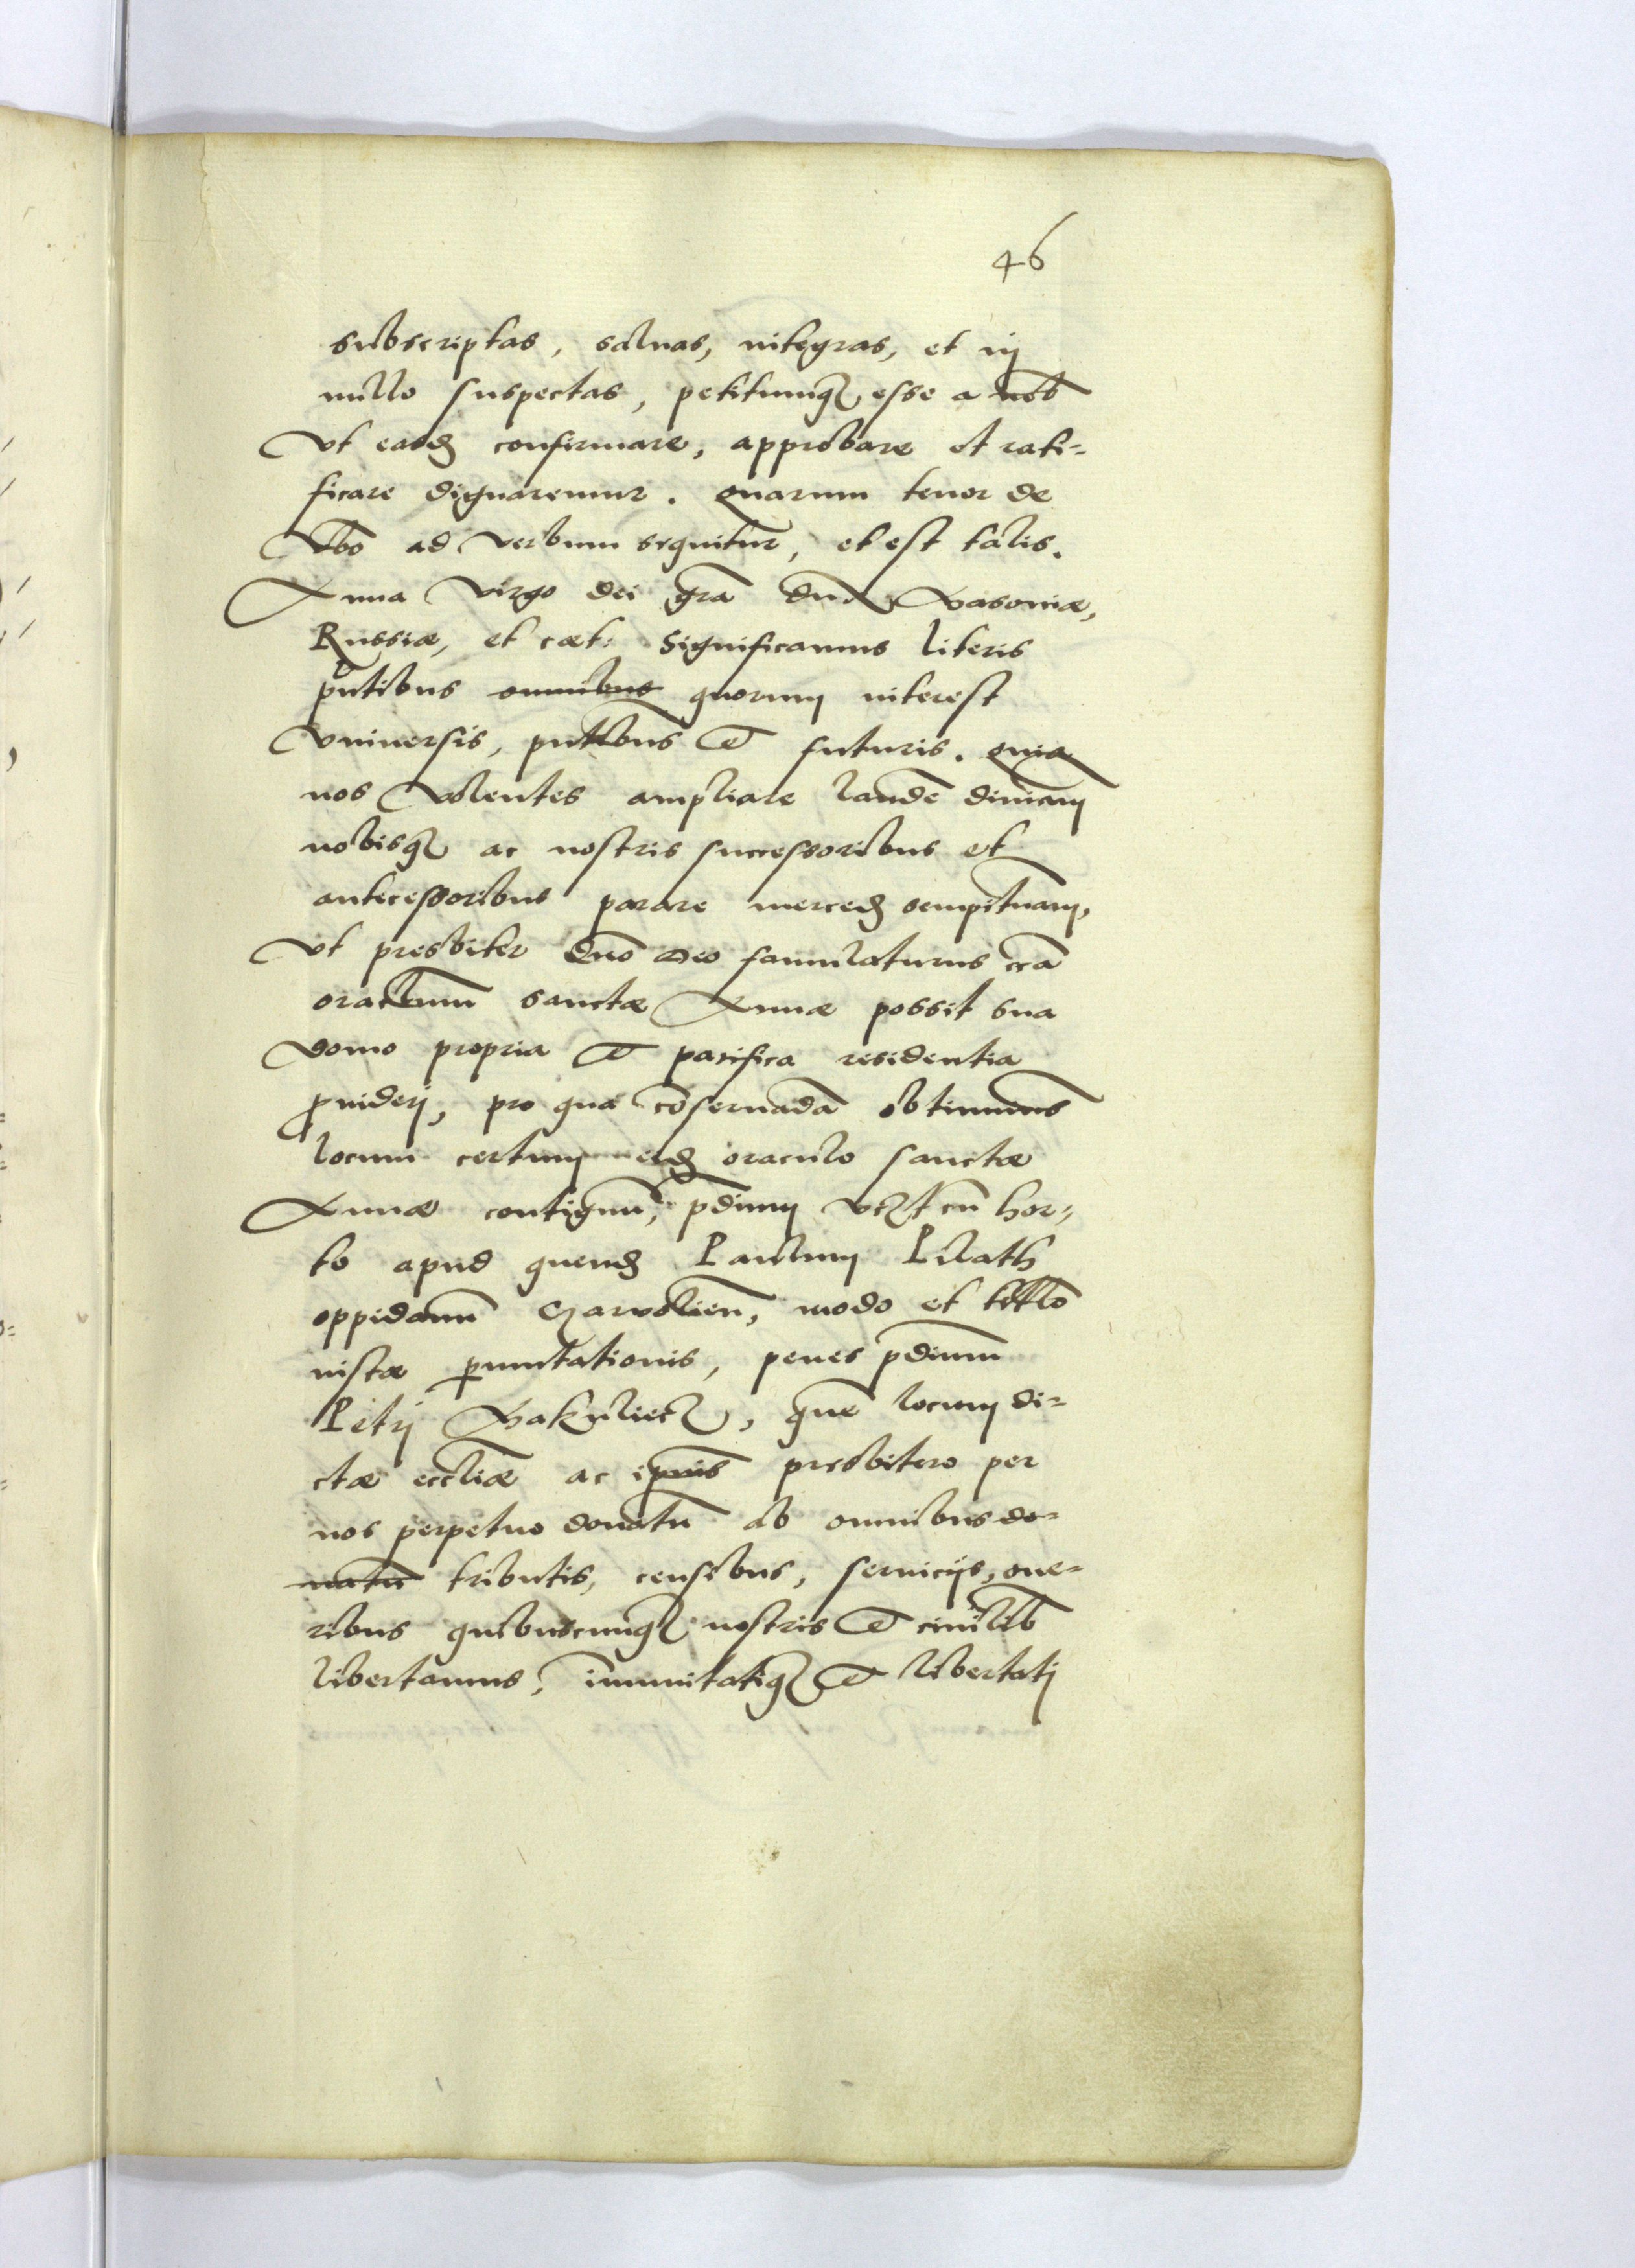 46
subscriptas, saluas, integras, et in
nullo suspectas, petitumq₃ esse a nob̄
vt easdē confirmare, approbare et rati-
ficare dignaremur. quarum tenor de
vb̄o ad verbum sequitur, et est talis.
Anna virgo dei gr̄a dux Masoviæ,
Russiæ, et cæt: Significamus literis
pn̄tibus omnibus quorum interest
vniuersis, pn̄tibus et futuris. quia
nos volentes ampliare laudē diuinam
nobisq₃ ac nostris successoribus et
antecessoribus parare mercedē sempit̄nam,
vt presbiter dn̄o Deo famulaturus circā
oraculum sanctæ Annæ possit sua
domo propria et pacifica residentia
ꝓuideri, pro qua cōseruādā obtinuimus
locum certum eidē oraculo sanctæ
Annæ contiguū, p̄dium vcꝫt cū hor-
to apud quendā Paulum Pilath
oppidanū Garvolien̄, modo et titulo
iustæ ꝑmutationis, penes p̄dium
Petri Makuliecz, quē locum di-
ctæ eccl̄iæ ac ipsius presbitero per
nos perpetuo donatū ab omnibus do-
natū tributis, censibus, seruicijs, one-
ribus quibuscunq₃ nostris et ciuilib̄
libertamus, im̄unitatiq₃ et libertati